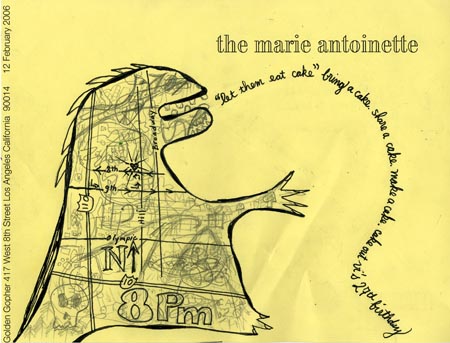 Golden Gopher 417 West 8th Street Los Angeles California 90014 12 February 2006
the marie antoinette
"let them eat cake" bring a cake. share a cake. make a cake. cake out
Broadway
8th
9th
Hill
110
Olympic
N
10
8 Pm